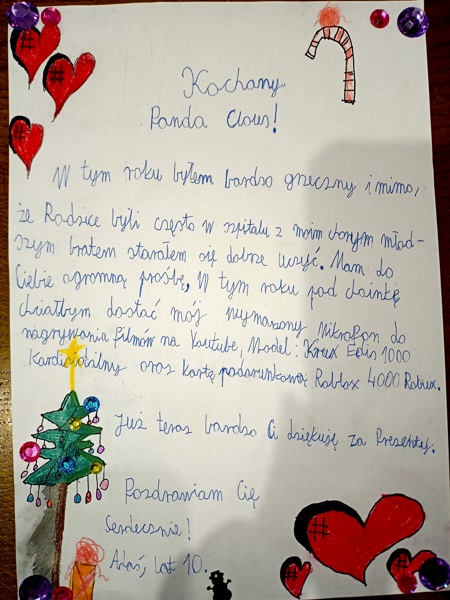 Kochany
Panda Claus!
W tym roku byłem bardzo grzeczny i mimo,
że Rodzice byli często w szpitalu z moim chorym młod-
szym bratem starałem się dobrze uczyć. Mam do
Ciebie ogromną prośbę, W tym roku pod choinkę
chciałbym dostać mój wymarzony Mikrofon do
nagrywania filmów na Youtube, Model: Krux Edis 1000
Kardioidalny oraz kartę podarunkową Roblox 4000 Robux.
Już teraz bardzo Ci dziękuję za Prezenty.
Pozdrawiam Cię
Serdecznie!
Adaś, lat 10.